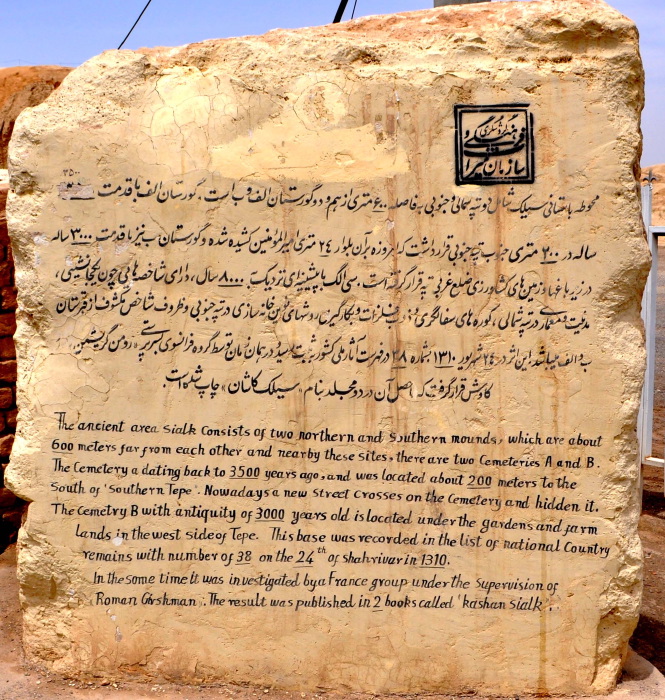 میراث فرهنگی و گردشگری
سازمان
۳۵۰۰
محوطه باستانی سیلک شامل دو تپه شمالی و جنوبی به فاصله ۶۰۰ متری از هم و دو گورستان الف و ب است. گورستان الف با قدمت
ساله در ۲۰۰ متری جنوب تپه جنوبی قرار داشت که امروزه بر آن بلوار ۲۴ متری امیرالمؤمنین کشیده شده و گورستان ب نیز با قدمت ۳۰۰۰ ساله
در زیر باغها و زمین های کشاورزی ضلع غربی تپه قرار گرفته است. سی الک با پیشینه ای نزدیک به ۸۰۰۰ سال، دارای شاخصه هایی چون یکجانشینی،
مدنیت و معماری در تپه شمالی، کوره های سفالگری و ذوب فلزات و بکارگیری روشهای نوین خانه سازی در تپه جنوبی و ظروف شاخص مکشوف از قبرستان
ب و الف میباشد. این اثر در ۲۴ شهریور ۱۳۱۰ بشماره ۳۸ در فهرست آثار ملی کشور به ثبت رسید و در همان زمان توسط گروه فرانسوی به سرپرستی «رومن گریشمن»
کاوش قرار گرفت که حاصل آن در دو مجلد بنام «سیلک کاشان» چاپ شده است.
The ancient area sialk consists of two northern and Southern mounds, which are about
600 meters far from each other and nearby these sites, there are two Cemeteries A and B.
The Cemetery a dating back to 3500 years ago, and was located about 200 meters to the
South of 'Southern Tepe'. Nowadays a new Street Crosses on the Cemetery and hidden it.
The Cemetry B with antiquity of 3000 years old is located under the gardens and farm
Lands in the west side of Tepe. This base was recorded in the list of national Country
remains with number of 38 on the 24th of shahrivar in 1310.
In the some time It was investigated by a France group under the Supervision of
Roman Girshman. The result was published in 2 books called 'kashan sialk'.